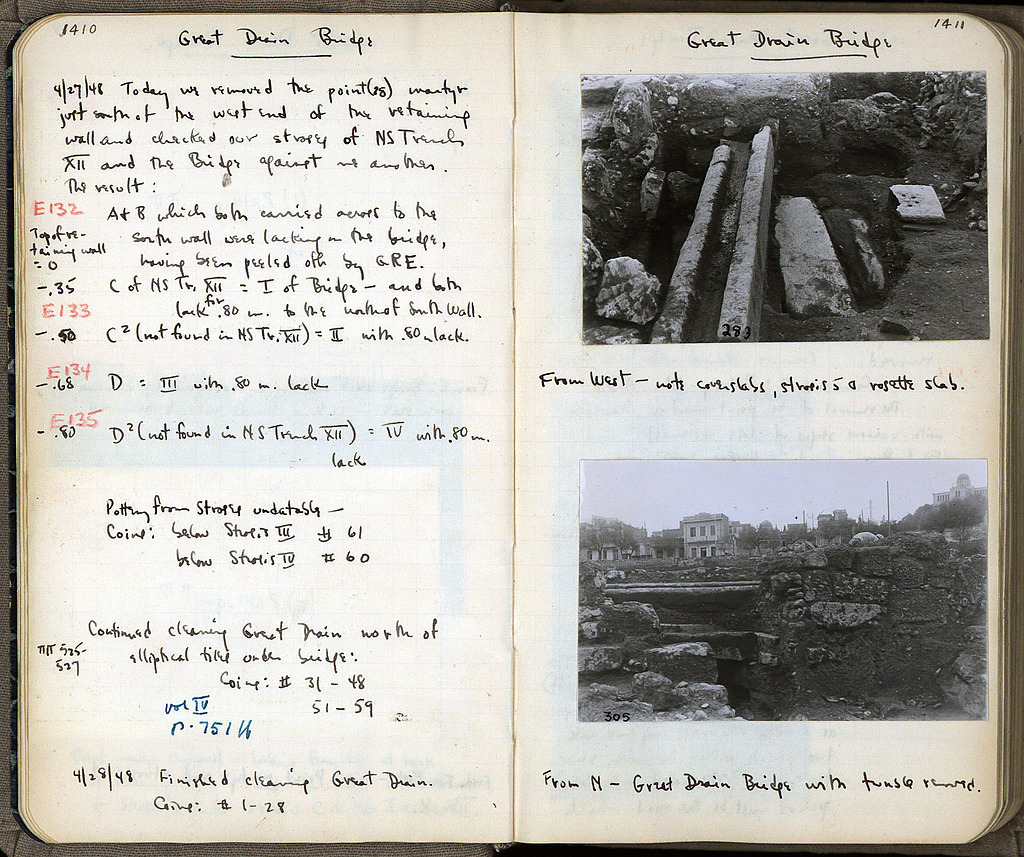 1410
Great Drain Bridge
4/27/48 Today we removed the point(es) martyr
just south of the west end of the retaining
wall and checked our stroses of NS Trench
XII and the Bridge against one another.
The result:
E132
Top of re-
taining wall
= 0
A & B which both carried across to the
south wall were lacking in the bridge,
having been peeled off by GRE.
-.35 C of NS Tr. XII = I of Bridge - and both
lack for .80 m. to the north of South Wall.
E133
-.50 C² (not found in NS Tr. XII) = II with .80 m lack.
E134
-.68 D = III with .80 m. lack
E135
-.80 D² (not found in NS Trench XII) = IV with .80 m.
lack
Pottery from Stroses undatable -
Coins: below Strosis III # 61
below Strosis IV # 60
Continued cleaning Great Drain north of
elliptical tiles under bridge:
525-
527
Coins: # 31 - 48
51 - 59
vol IV
p. 751 ff
4/28/48 Finished cleaning Great Drain.
Coins: # 1-28
1411
Great Drain Bridge
283
From West - note coverslabs, strosis 5 & rosette slab.
305
From N - Great Drain Bridge with tumble removed.